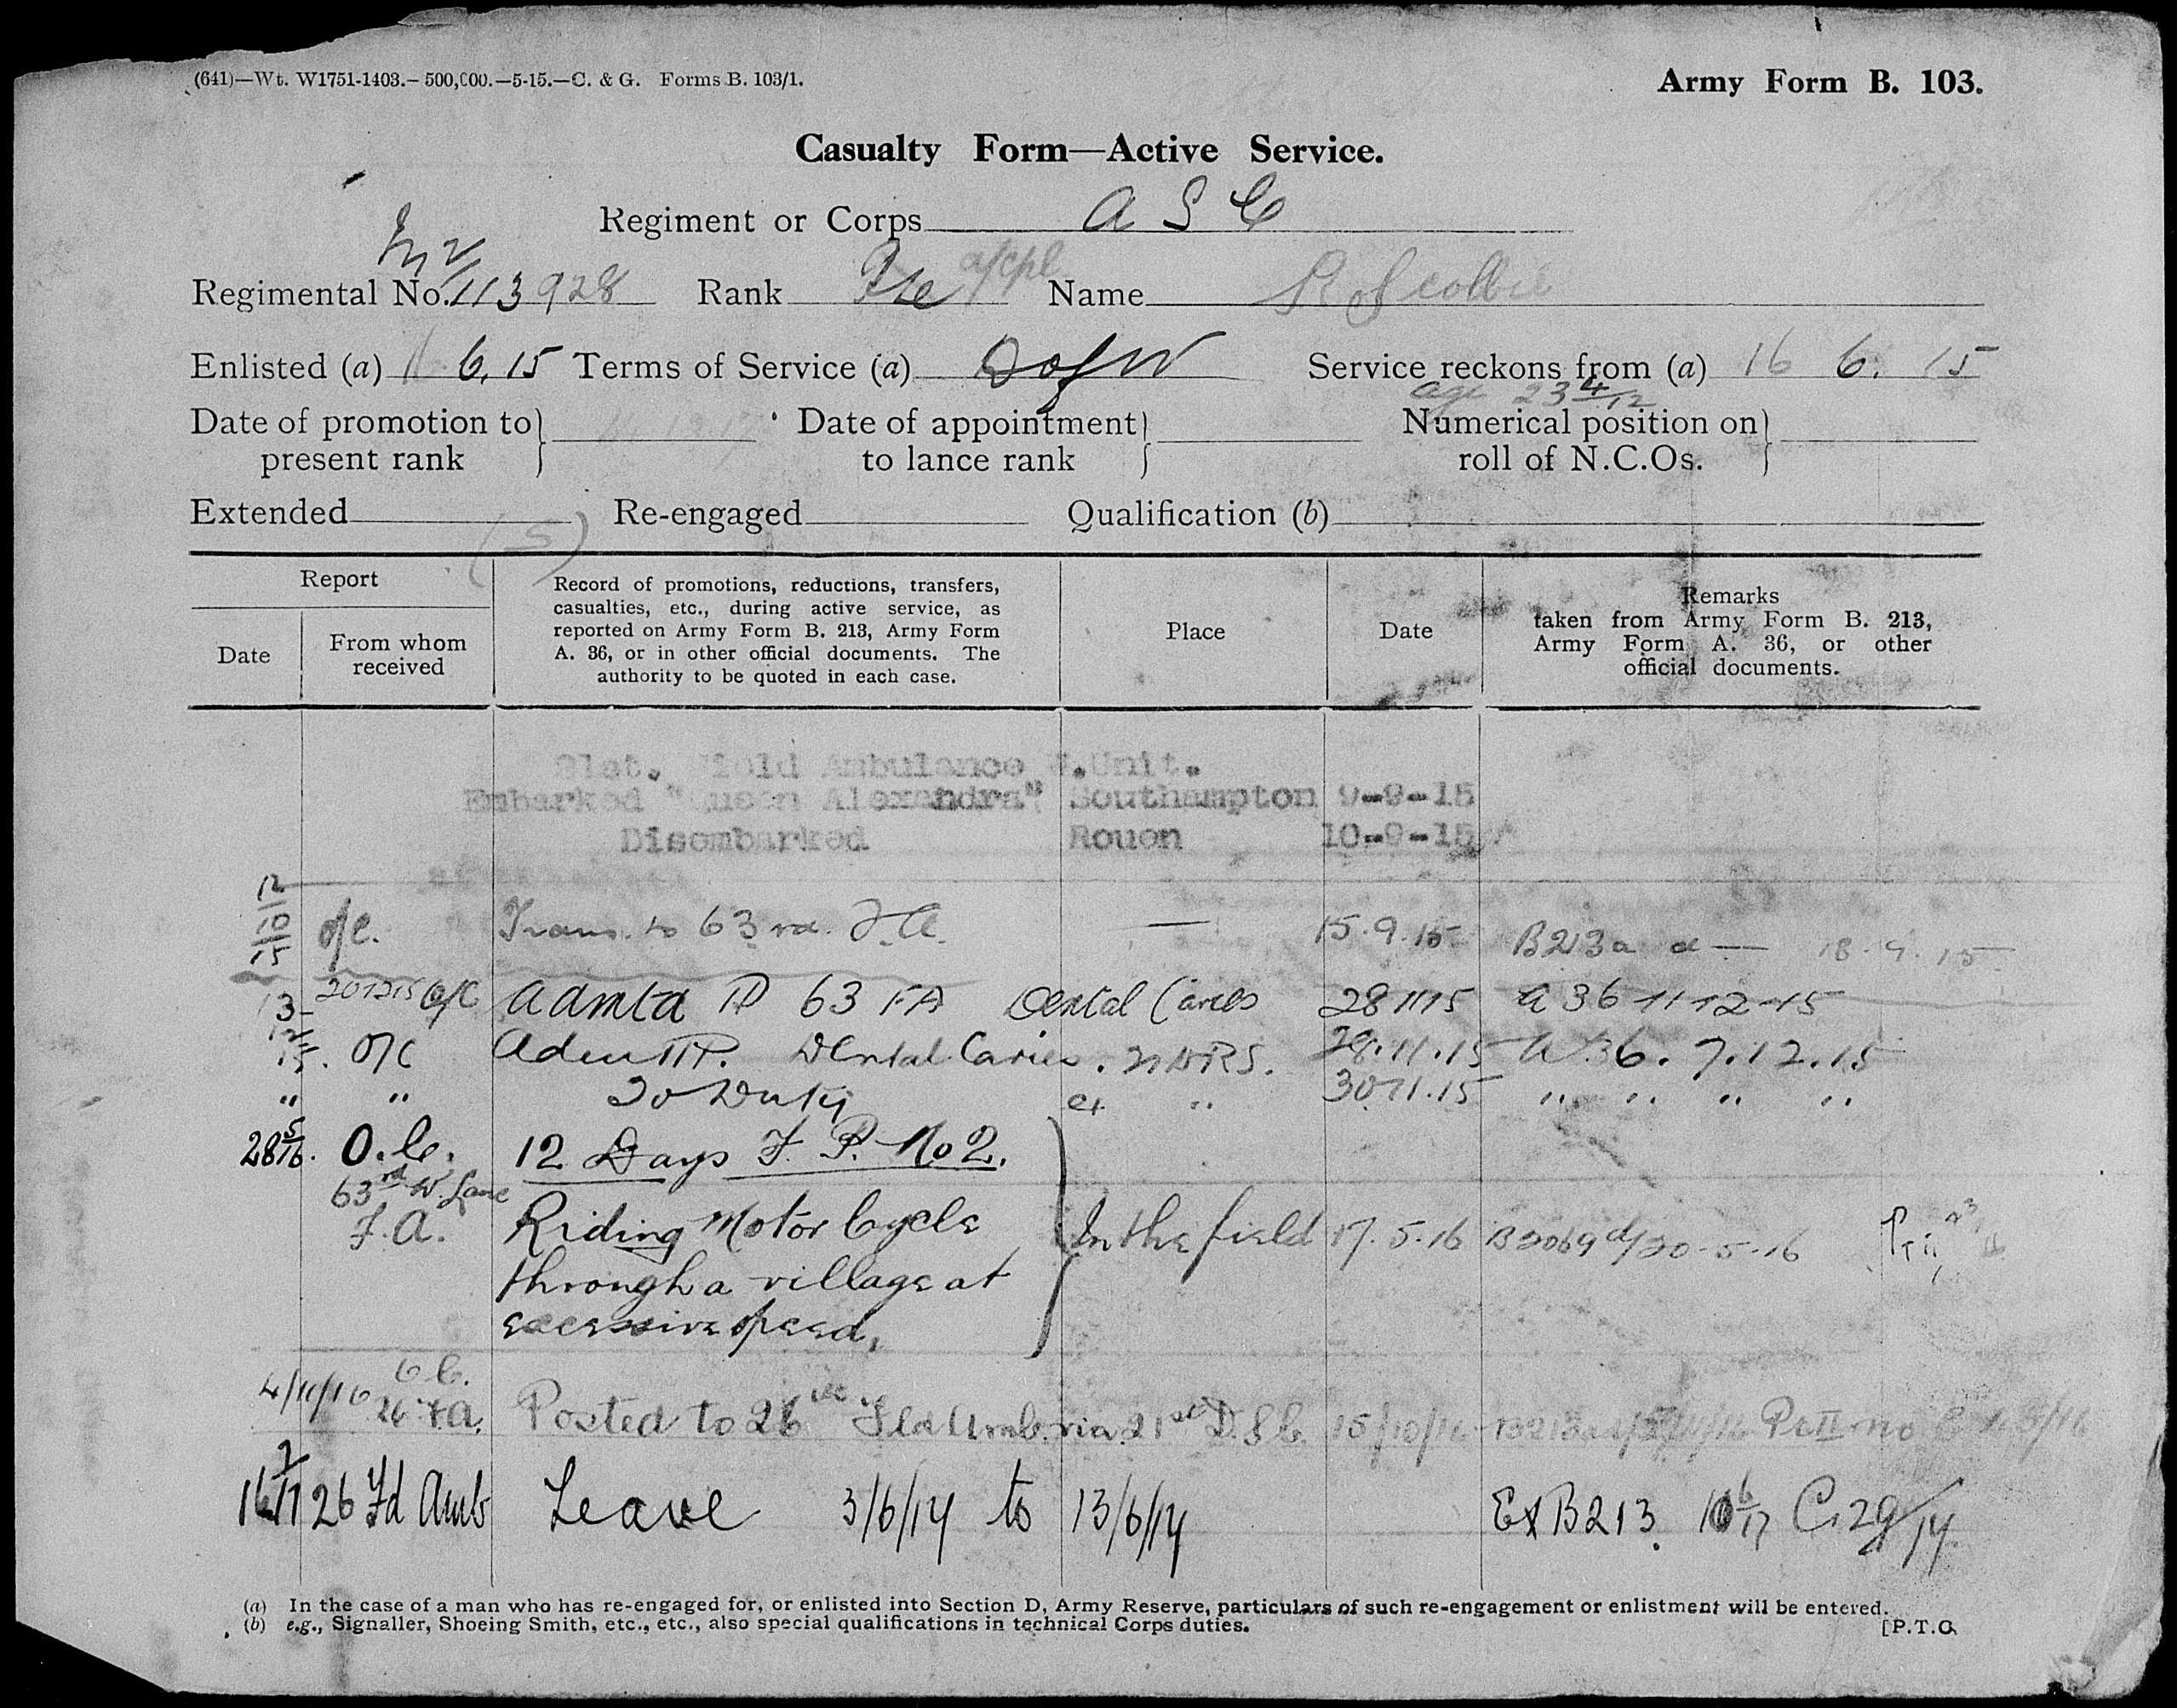 (641)—Wt. W1751-1403.—500,000.—5-15.—C. & G. Forms B. 103/1.
Army Form B. 103.
Casualty Form—Active Service.
Regiment or Corps A S C
Regimental No. M2/113928 Rank Pte a/cpl Name
Enlisted (a) 6.15 Terms of Service (a) D of W Service reckons from (a) 16 6. 15
age 23 4/12
Date of promotion to present rank Date of appointment to lance rank Numerical position on roll of N.C.Os.
Extended Re-engaged Qualification (b)
(S)
Report
Date
From whom received
Record of promotions, reductions, transfers, casualties, etc., during active service, as reported on Army Form B. 213, Army Form A. 36, or in other official documents. The authority to be quoted in each case.
Place
Date
Remarks taken from Army Form B. 213, Army Form A. 36, or other official documents.
Field Ambulance Unit.
Embarked "Queen Alexandra" Southampton 9-9-15
Disembarked Rouen 10-9-15
12/10/15 o/c. Trans. to 63rd. F.A. — 15.9.15 B213a d— 18.9.15
20 12 15 O/C admtd 63 FA Dental Caries 28 11 15 A 36 1 12 15
O/C Dental Caries. 28.11.15 A 36. 7.12.15
" " To Duty ex " 30.11.15 " " " "
28 5/16. O.C. 12 Days F. P. No 2.
63rd W. Lanc
F.A. Riding Motor Cycle In the field 17.5.16 B2069 d/20-5-16
through a village at
excessive speed,
4/11/16 O C. 26 F A. Posted to 26th Fld Amb. via 21st D.S.C. 15/10/16
26 Fd Amb Leave 3/6/17 to 13/6/17 Ex B213.
(a) In the case of a man who has re-engaged for, or enlisted into Section D, Army Reserve, particulars of such re-engagement or enlistment will be entered.
(b) e.g., Signaller, Shoeing Smith, etc., etc., also special qualifications in technical Corps duties.
[P.T.O.